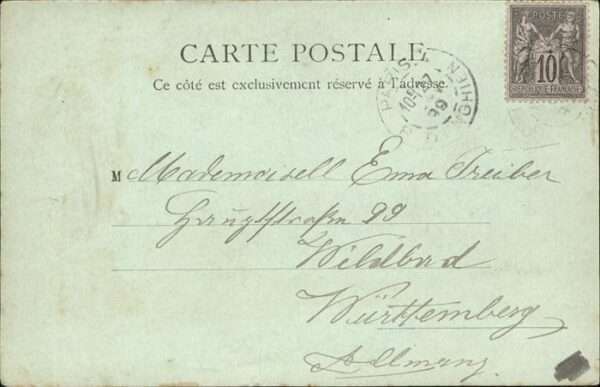 POSTE
10
RÉPUBLIQUE FRANÇAISE
CARTE POSTALE
Ce côté est exclusivement réservé à l'adresse.
PARIS
99
M Mademoisell Ema Treiber
Hauptstraße 99
Wildbad
Württemberg
Allmang